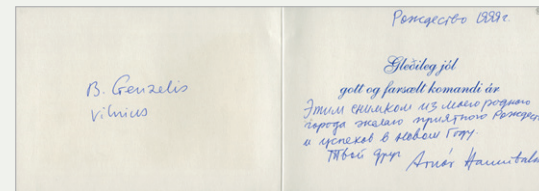 B. Genzelis
Vilnius
Рождество 1999г.
Gleðileg jól
gott og farsælt komandi ár
Этим снимком из моего родного
города желаю приятного Рождества
и успехов в Новом Году.
Твой друг Arnór Hannibalsson